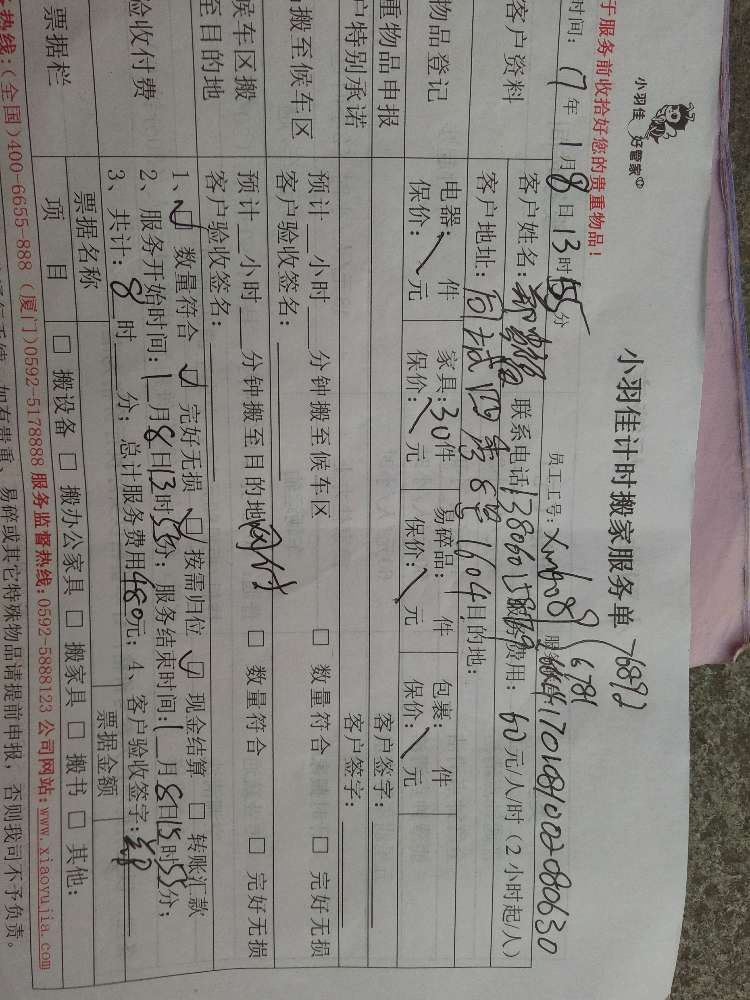 于服务前收拾好您的贵重物品！
小羽佳 好管家
小羽佳计时搬家服务单 76892
时间：17年1月8日13时55分
员工工号：xm608 / 6781
1701081002080630
客户资料
客户姓名：
联系电话13806015879
服务费用：60元/人/时（2小时起/人）
客户地址：同城四季8号1604
目的地：
物品登记
电器：/件 家具：30件 易碎品：/件 包裹：/件
保价：/元 保价：/元 保价：/元 保价：/元
重物品申报
客户签字：
户特别承诺
客户签字：
搬至候车区
预计__小时__分钟搬至候车区 □ 数量符合 □ 完好无损
客户验收签名：
候车区搬至目的地
预计__小时__分钟搬至目的地 □ 数量符合 □ 完好无损
客户验收签名：
验收付费
1、☑ 数量符合 ☑ 完好无损 ☑ 按需归位 ☑ 现金结算 □ 转账汇款
2、服务开始时间：1月8日13时55分；服务结束时间：1月8日15时55分；
3、共计：8时__分；总计服务费用480元；4、客户验收签字：
票据栏
票据名称 票据金额
项目 □ 搬设备 □ 搬办公家具 □ 搬家具 □ 搬书 □ 其他：
热线：（全国）400-6655-888（厦门）0592-5178888 服务监督热线：0592-5888123 公司网站：www.xiaoyujia.com
如有贵重、易碎或其它特殊物品请提前申报，否则我司不予负责。